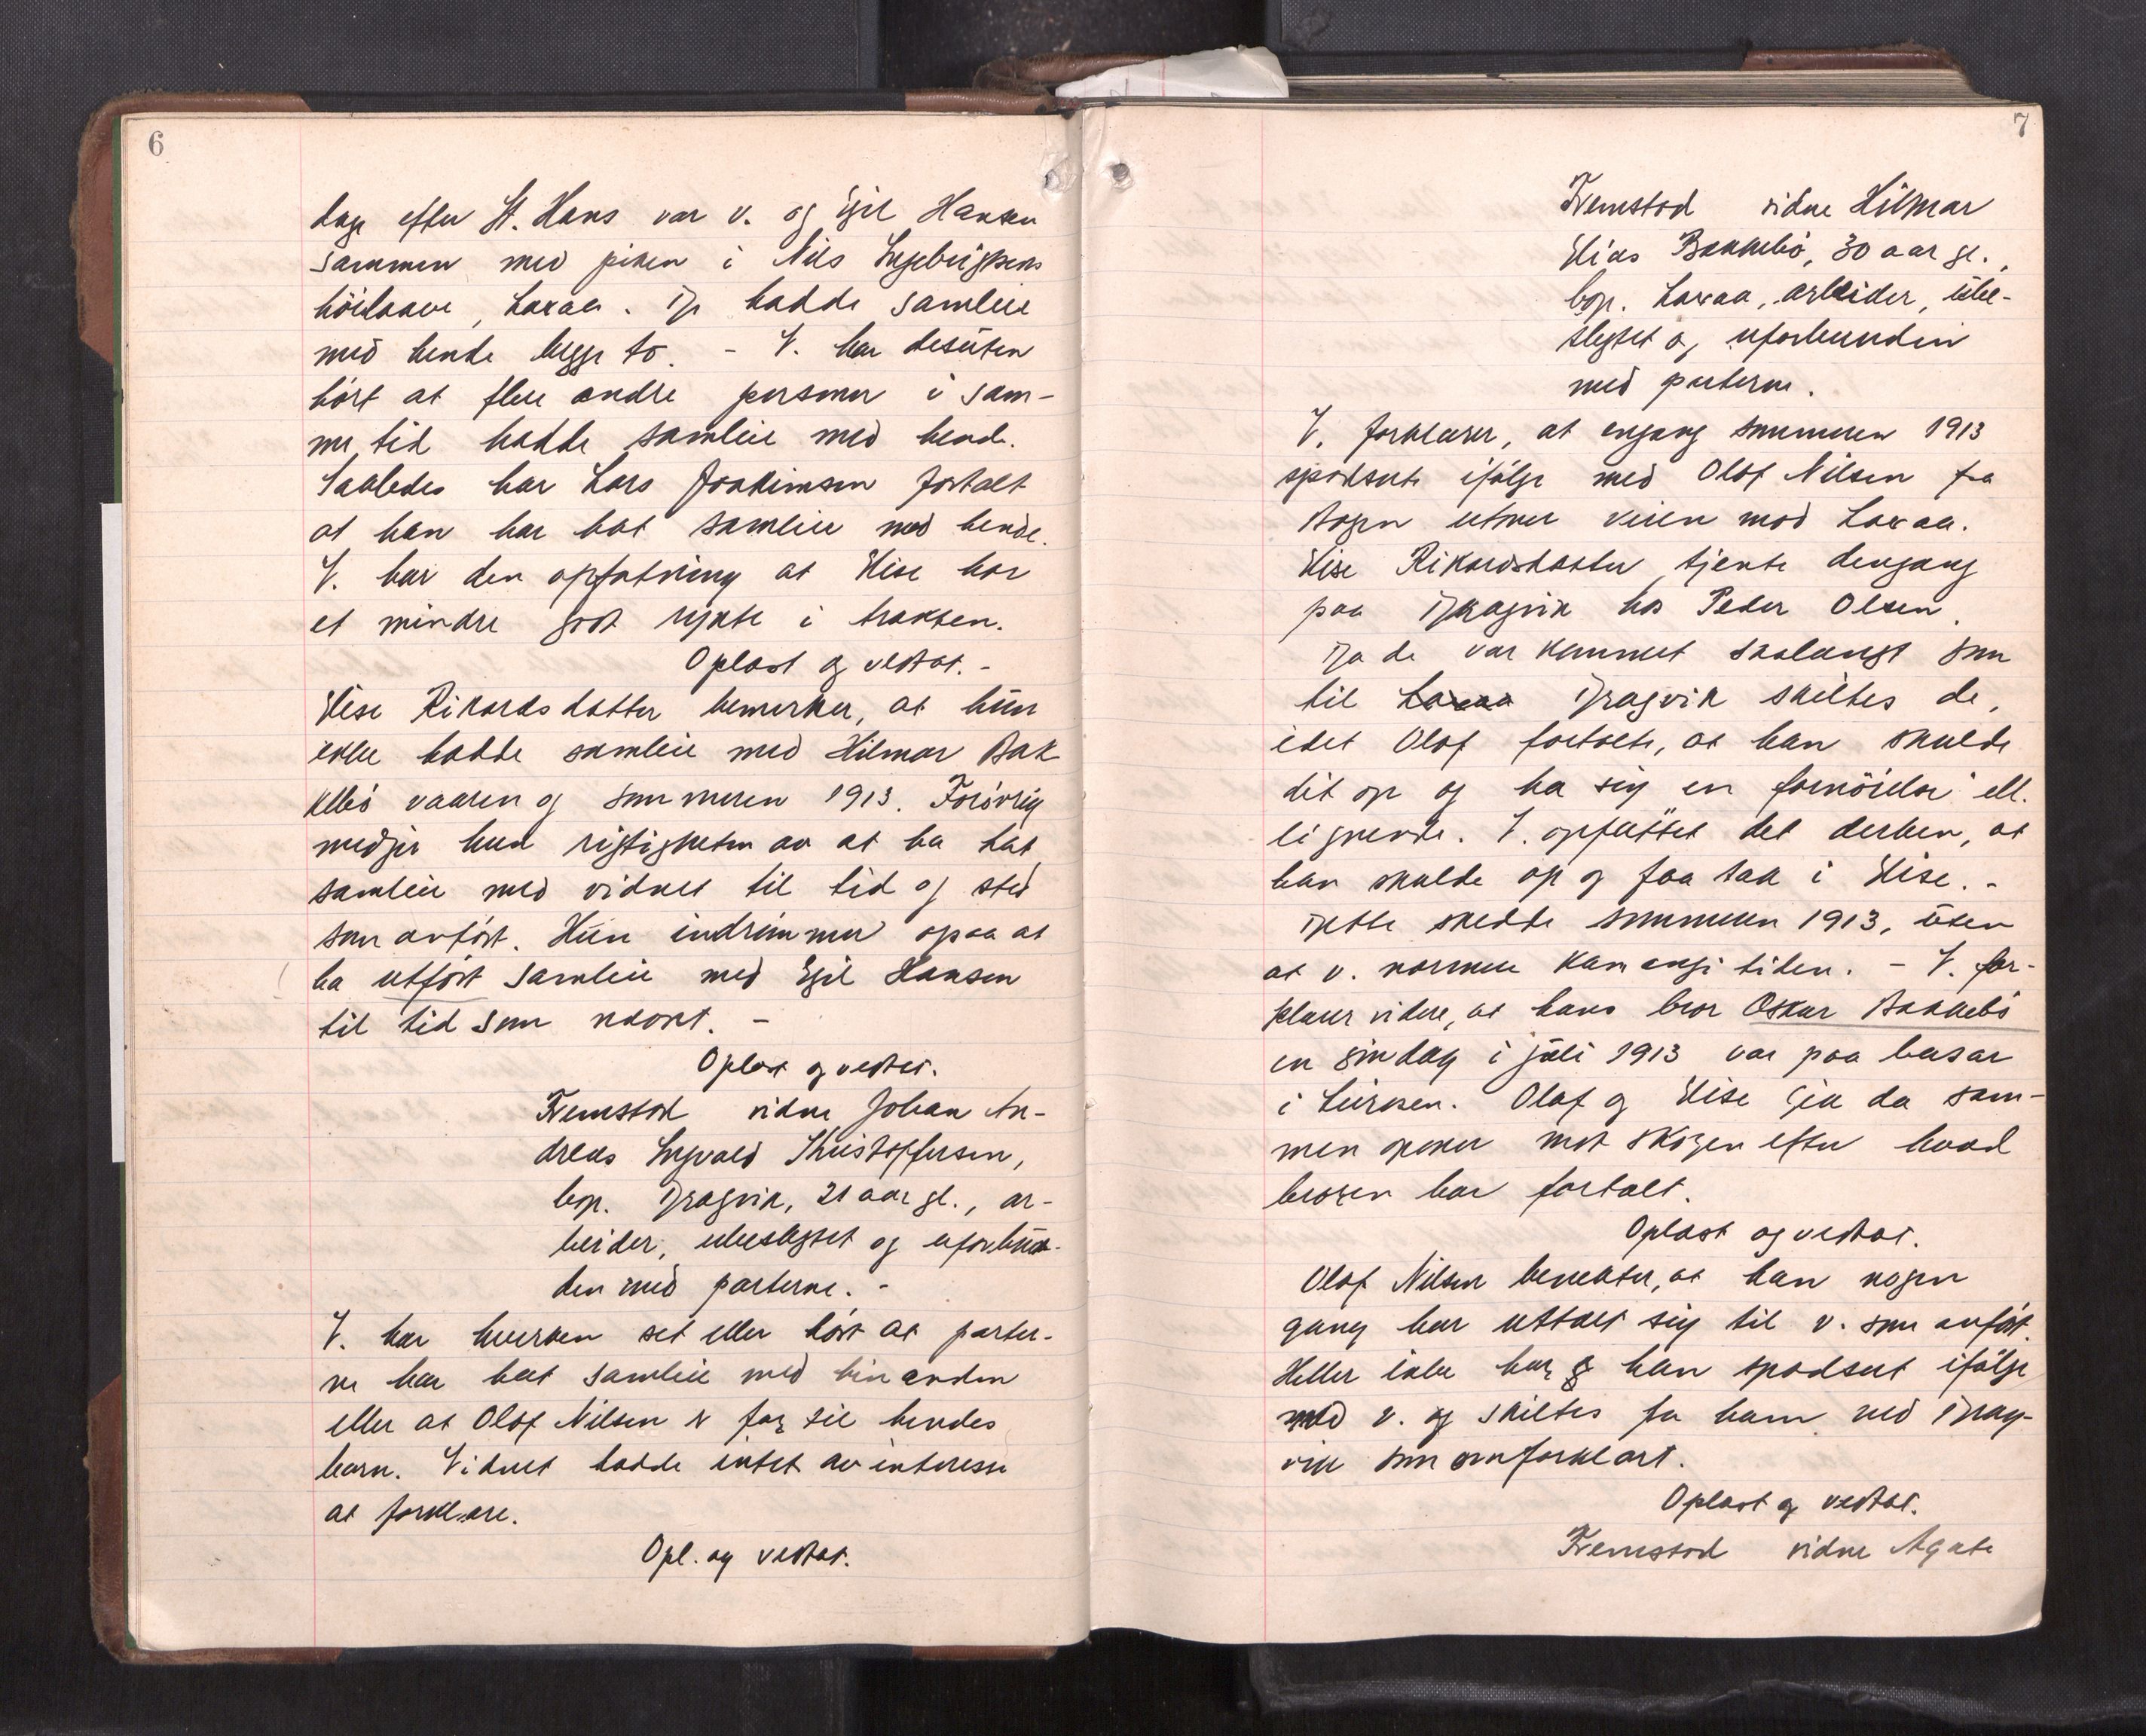 6
dage efter St. Hans var v. og Egil Hansen
sammen med piken i Nils Ingebrigtsens
höilaave, Laxaa. De hadde samleie
med hende begge to. - V. har desuten
hört at flere andre personer i sam-
me tid hadde samleie med hende.
Saaledes har Lars Joakimsen fortalt
at han har hat samleie med hende.
V. har den opfatning at Elise har
et mindre godt rykte i trakten.
Oplæst og vedtat. -
Elise Rikardsdatter bemerker, at hun
ikke hadde samleie med Hilmar Bak
kebö vaaren og sommeren 1913. Forövrig
medgir hun rigtigheten av at ha hat
samleie med vidnet til tid og sted
som anfört. Hun indrömmer ogsaa at
ha utfört samleie med Egil Hansen
til tid som nævnt. -
Oplæst og vedtat.
Fremstod vidne Johan An-
dreas Ingvald Kristoffersen,
bop. Dragvik, 21 aar gl., ar-
beider, ubeslegtet og uforbun-
den med parterne. -
V. har hverken set eller hört at parter-
ne har hat samleie med hinanden
eller at Olaf Nilsen er far til hendes
barn. Vidnet hadde intet av interesse
at forklare.
Opl. og vedtat.
7
Fremstod vidne Hilmar
Elias Bakkebö, 30 aar gl.,
bop. Laxaa, arbeider, ube-
slegtet og uforbunden
med parterne.
V. forklarer, at engang sommeren 1913
spadserte ifölge med Olaf Nilsen fra
Bogen utover veien mod Laxaa.
Elise Rikardsdatter tjente dengang
paa Dragvik hos Peder Olsen.
Da de var kommet saalangt som
til Laxaa Dragvik skiltes de,
idet Olaf fortalte, at han skulde
dit op og ha sig en fornöielse" ell.
lignende. V. opfattet det derhen, at
han skulde op og faa tak i Elise. -
Dette skedde sommeren 1913, uten
at v. nærmere kan angi tiden. - V. for-
klarer videre, at hans bror Oskar Bakkebö
en söndag i juli 1913 var paa basar
i Leiros­en. Olaf og Elise gik da sam-
men opover mot skogen efter hvad
broren har fortalt.
Oplæst og vedtat.
Olaf Nilsen benekter, at han nogen
gang har uttalt sig til v. som anfört.
Heller ikke har han spadsert ifölge
med v. og skiltes fra ham ved Drag-
vik som omforklart.
Oplæst og vedtat.
Fremstod vidne Agate